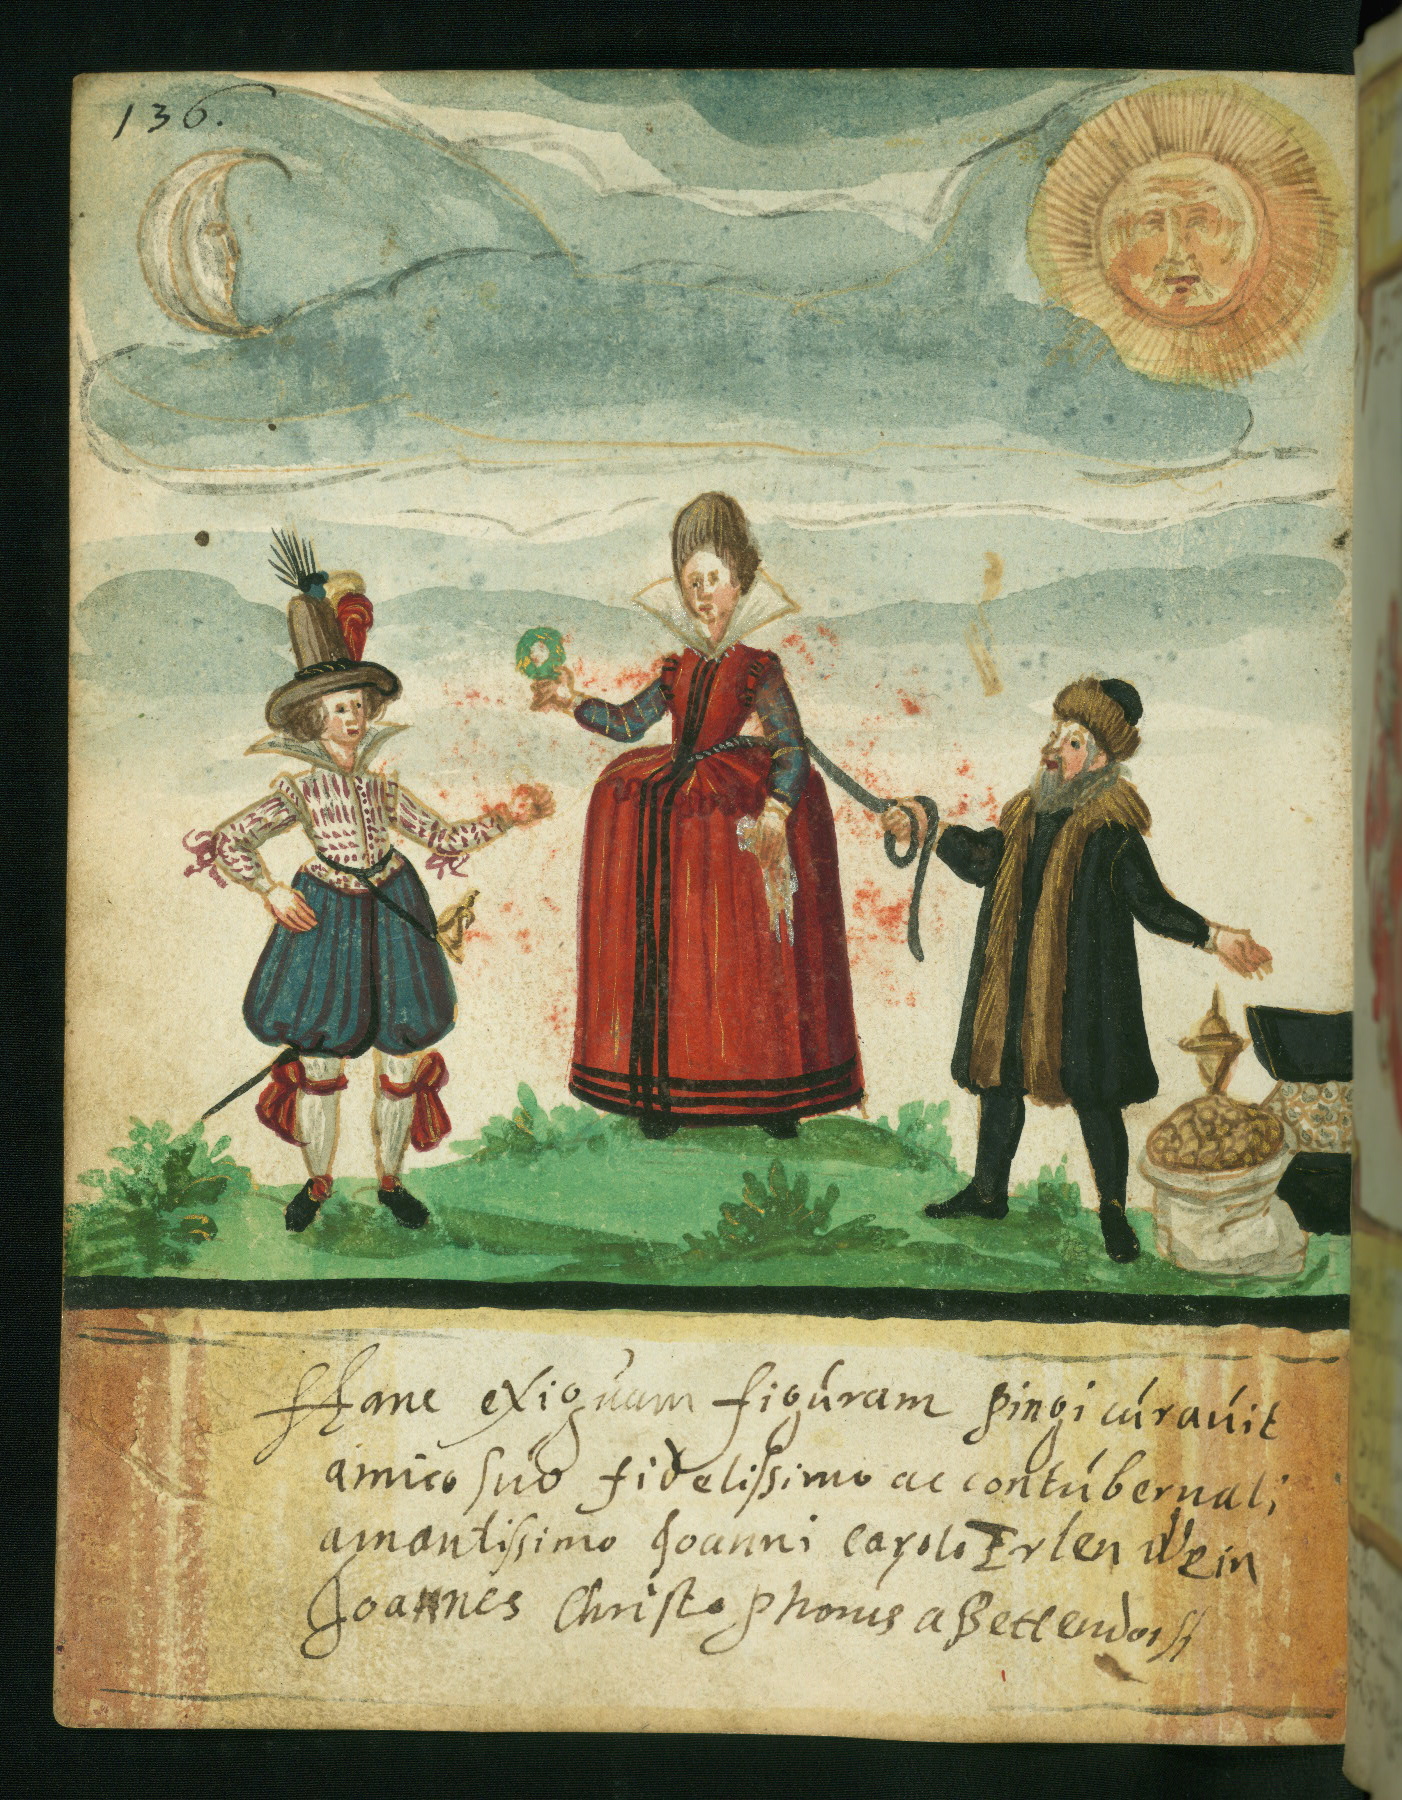 136.
Hanc exiguam figuram pingi curavit
amico suo fidelissimo ac contubernali
amantissimo Joanni Carolo Erlenwein
Joannes Christophorus a Bettendorff